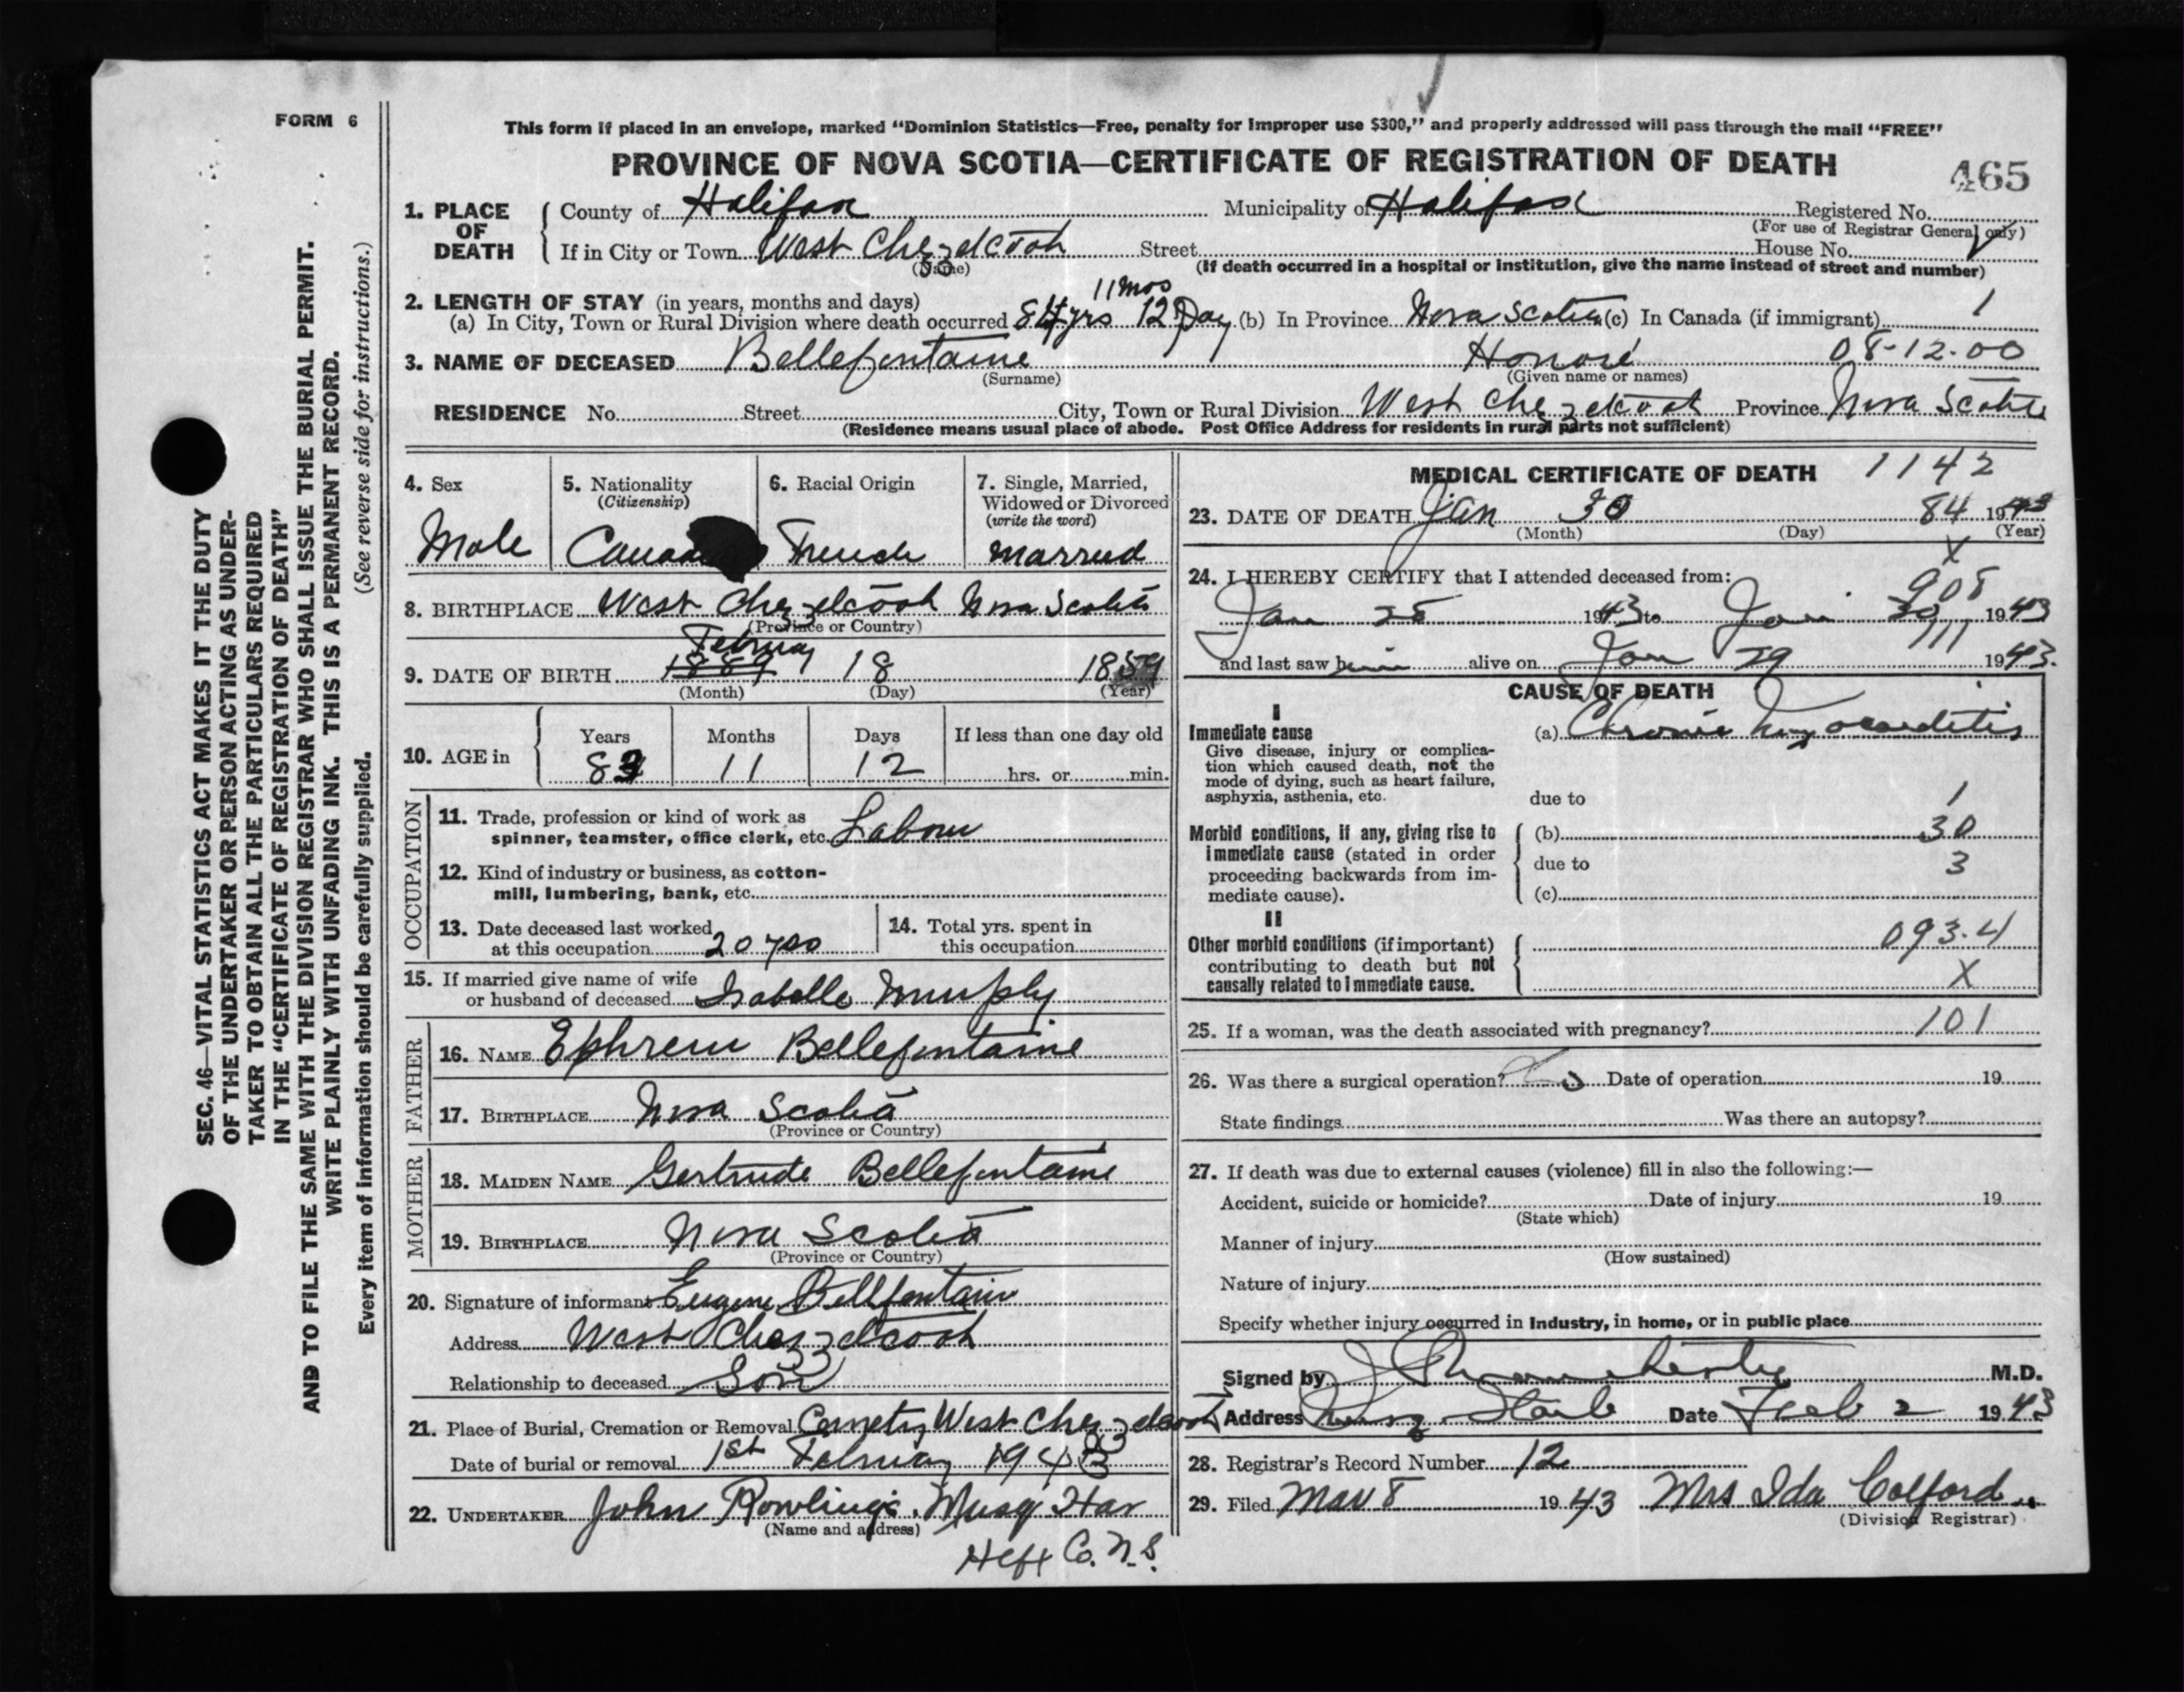 FORM 6
This form if placed in an envelope, marked "Dominion Statistics—Free, penalty for improper use $300," and properly addressed will pass through the mail "FREE"
PROVINCE OF NOVA SCOTIA—CERTIFICATE OF REGISTRATION OF DEATH
465
1. PLACE OF DEATH
County of Halifax Municipality of Halifax Registered No.
(For use of Registrar General only)
If in City or Town West Chezzetcook Street House No.
(Name) (If death occurred in a hospital or institution, give the name instead of street and number)
2. LENGTH OF STAY (in years, months and days)
(a) In City, Town or Rural Division where death occurred 84 yrs 11 mos 12 Day (b) In Province Nova Scotia (c) In Canada (if immigrant) 1
3. NAME OF DECEASED Bellefontaine Honoré 08-12-00
(Surname) (Given name or names)
RESIDENCE No. Street City, Town or Rural Division West Chezzetcook Province Nova Scotia
(Residence means usual place of abode. Post Office Address for residents in rural parts not sufficient)
4. Sex
Male
5. Nationality
(Citizenship)
6. Racial Origin
French
7. Single, Married,
Widowed or Divorced
(write the word)
Married
8. BIRTHPLACE West Chezzetcook Nova Scotia
(Province or Country)
9. DATE OF BIRTH 1889 February 18 1859
(Month) (Day) (Year)
10. AGE in
Years Months Days If less than one day old
11 12 hrs. or min.
OCCUPATION
11. Trade, profession or kind of work as
spinner, teamster, office clerk, etc. Labour
12. Kind of industry or business, as cotton-
mill, lumbering, bank, etc.
13. Date deceased last worked
at this occupation 20700
14. Total yrs. spent in
this occupation
15. If married give name of wife
or husband of deceased Isabelle Murphy
FATHER
16. NAME Ephrem Bellefontaine
17. BIRTHPLACE Nova Scotia
(Province or Country)
MOTHER
18. MAIDEN NAME Gertrude Bellefontaine
19. BIRTHPLACE Nova Scotia
(Province or Country)
20. Signature of informant Eugene Bellfontain
Address West Chezzetcook
Relationship to deceased Son
21. Place of Burial, Cremation or Removal Cemetry West Chezzetcook
Date of burial or removal 1st February 1943
22. UNDERTAKER John Rowlings. Musq Har
(Name and address)
Hfx Co. N.S.
MEDICAL CERTIFICATE OF DEATH 1142
23. DATE OF DEATH Jan 30 84 1943
(Month) (Day) (Year)
X
24. I HEREBY CERTIFY that I attended deceased from:
908
Jan 28 1943 to Jan 30 1943
111
and last saw him alive on Jan 29 1943.
CAUSE OF DEATH
I
Immediate cause
Give disease, injury or complica-
tion which caused death, not the
mode of dying, such as heart failure,
asphyxia, asthenia, etc.
(a) Chronic Myocarditis
due to 1
Morbid conditions, if any, giving rise to
immediate cause (stated in order
proceeding backwards from im-
mediate cause).
(b) 30
due to 3
(c)
II
Other morbid conditions (if important)
contributing to death but not
causally related to immediate cause.
093.4
X
25. If a woman, was the death associated with pregnancy? 101
26. Was there a surgical operation? Date of operation 19
State findings Was there an autopsy?
27. If death was due to external causes (violence) fill in also the following:—
Accident, suicide or homicide? Date of injury 19
(State which)
Manner of injury
(How sustained)
Nature of injury
Specify whether injury occurred in industry, in home, or in public place
Signed by M.D.
Address Date Feb 2 1943
28. Registrar's Record Number 12
29. Filed Mar 8 1943 Mrs Ida Colford
(Division Registrar)
SEC. 46—VITAL STATISTICS ACT MAKES IT THE DUTY
OF THE UNDERTAKER OR PERSON ACTING AS UNDER-
TAKER TO OBTAIN ALL THE PARTICULARS REQUIRED
IN THE "CERTIFICATE OF REGISTRATION OF DEATH"
AND TO FILE THE SAME WITH THE DIVISION REGISTRAR WHO SHALL ISSUE THE BURIAL PERMIT.
WRITE PLAINLY WITH UNFADING INK. THIS IS A PERMANENT RECORD.
Every item of information should be carefully supplied. (See reverse side for instructions.)